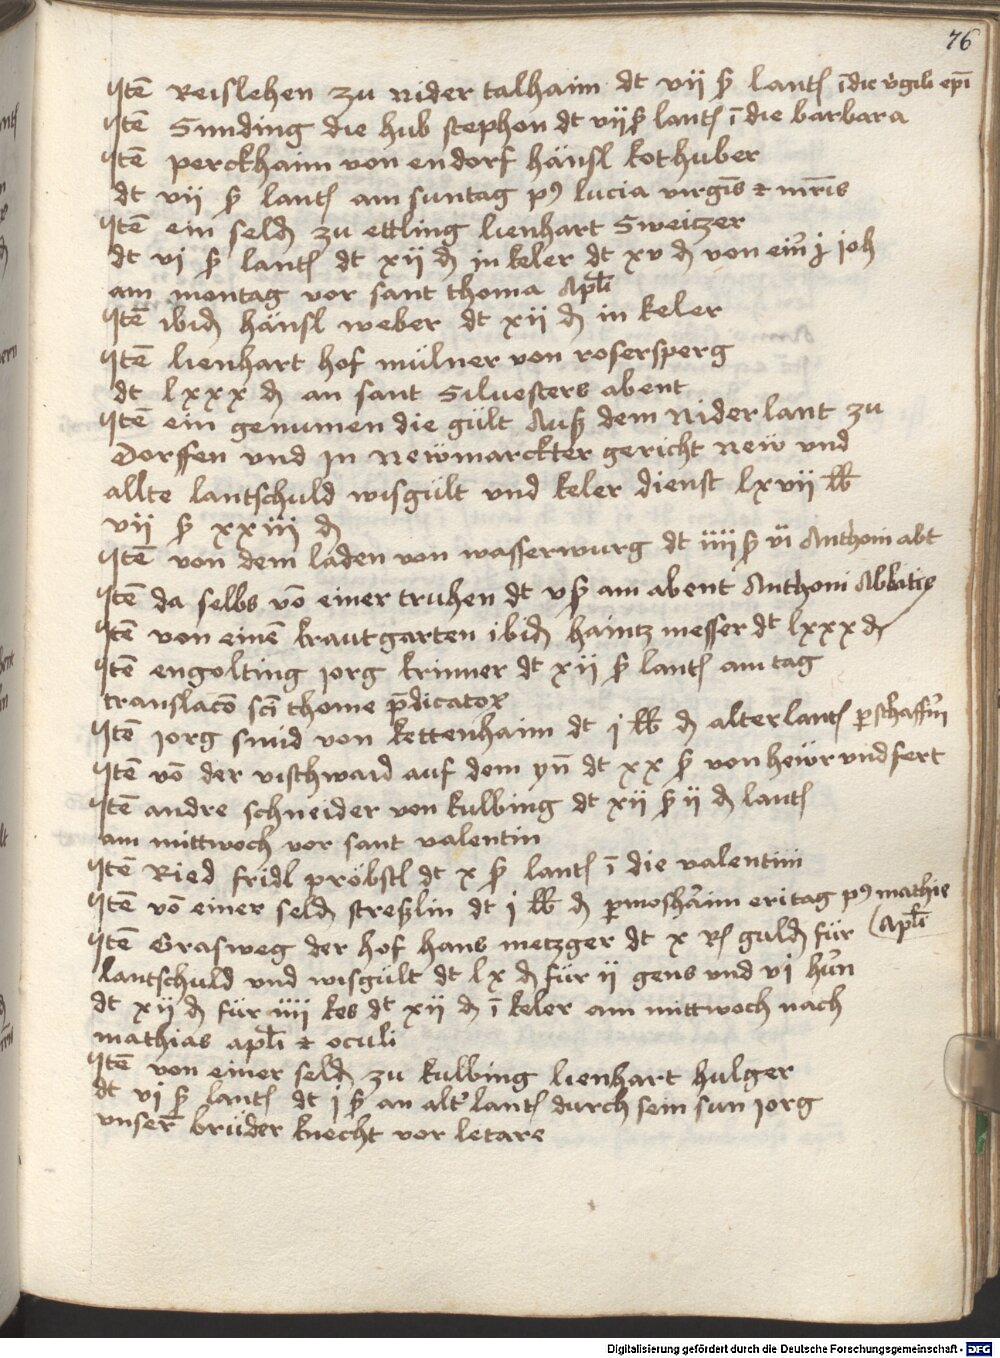 76
Itē Reislehen zu Nider talhaim dt vii ß lantß ī die vigilī epī
Itē Sunding die hub stephon dt vii ß lantß ī die barbara
Itē perckhaim von endorf hänsl kothuber
dt vii ß lantß am suntag pꝰ lucia virgīs et mr̄is
Itē ein seldn zu ettling lienhart Sweitzer
dt vi ß lantß dt xii d in keler dt xv d von ein j joh
am montag vor sant thoma Apl̄i
Itē ibid hänsl weber dt xii d in keler
Itē lienhart hof mülner von rosersperg
dt lxxx d an sant Siluesters abent
Itē ein genumen die gült Auß dem Niderlant zu
Dorffen vnd in Newmarckter gericht New vnd
allte lantschuld wisgült vnd keler dienst lxvii lb
vii ß xxiii d
Itē von dem laden von wasserwurg dt iiii ß vī Anthoni abt
Itē da selbs vō einer truhen dt v ß am abent Anthoni Abbatis
Itē von einē krautgarten ibid haintz messer dt lxxx d
Itē engolting iorg krinner dt xii ß lantß am tag
translacō scī thome p̄dicator
Itē iorg smid von kettenhaim dt j lb d alter lantß p schaffn̄
Itē vō der vischwaid auf dem yn̄ dt xx ß von hewr vnd fert
Itē andre schneider von kulbing dt xii ß ii d lantß
am mittwoch vor sant valentin
Itē Ried fridl pröbstl dt x ß lantß ī die valentini
Itē vō einer seldn streßlin dt j lb d p moshaim eritag pꝰ mathie
Apl̄i
Itē Grasweg der hof hans metzger dt x Rß guldn für
lantschuld vnd wisgült dt lx d für ii gens vnd vi hün
dt xii d für iiii kes dt xii d ī keler am mittwoch nach
mathias apl̄i et oculi
Itē von einer seldn zu kulbing lienhart hulger
dt vi ß lantß dt j ß an alt lantß durch sein sun iorg
vnser brüder knecht vor letare
Digitalisierung gefördert durch die Deutsche Forschungsgemeinschaft - DFG